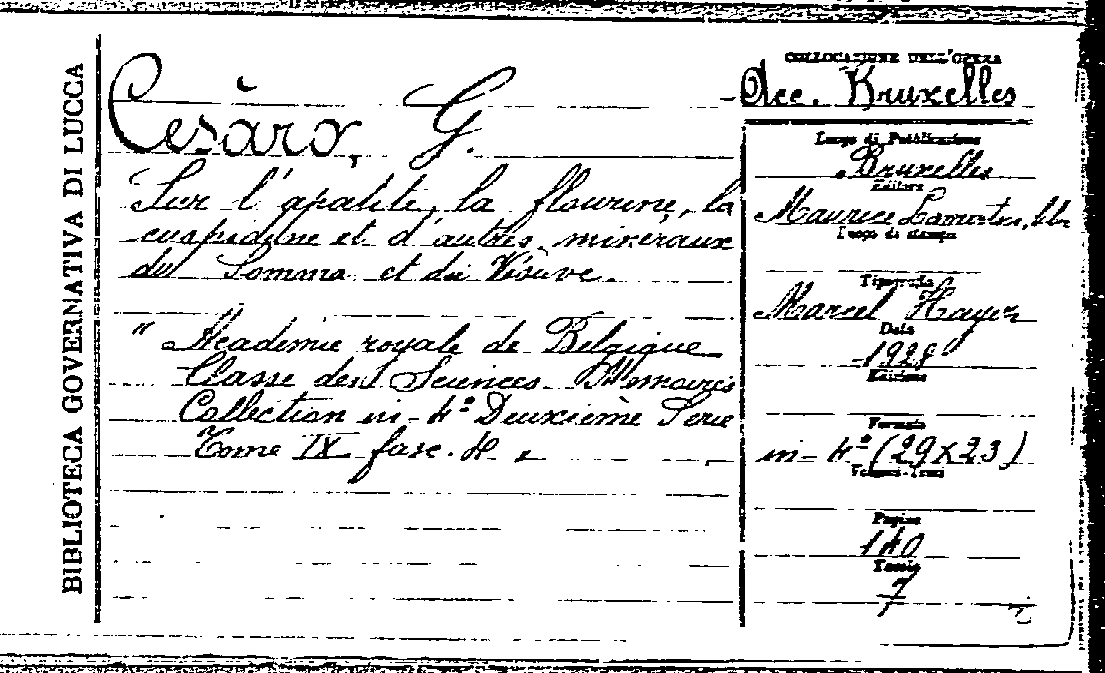 BIBLIOTECA GOVERNATIVA DI LUCCA
Cesàro, G.
Sur l'apatite, la flourine, la
cuspidine et d'autres minéraux
du Somma et du Vésuve.
" Académie royale de Belgique
Classe des Sciences. Memoires
Collection in-4º Deuxième Serie
Tome IX fasc. 4 "
COLLOCAZIONE DELL'OPERA
Acc. Bruxelles
Luogo di Pubblicazione
Bruxelles
Editore
Maurice Lamertin, lib
Luogo di stampa
Tipografia
Marcel Hayez
Data
1928
Edizione
Formato
in-4º (29x23)
Pagine
140
Tavole
7